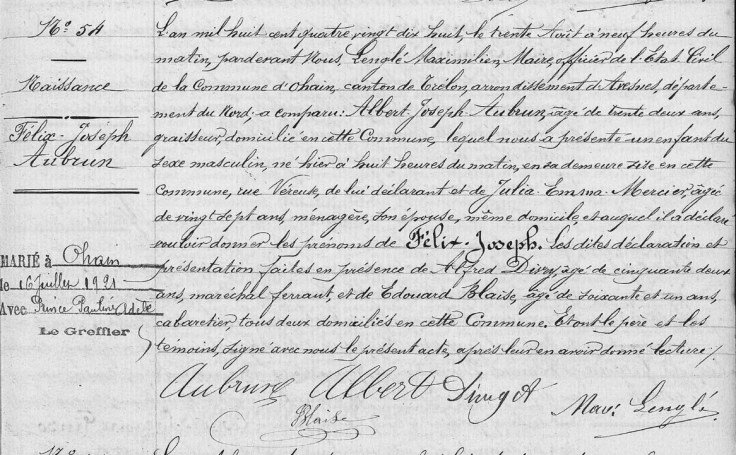 N° 54
Naissance
Félix-Joseph
Aubrun
MARIÉ à Ohain
le 16 juillet 1921
Avec Prince Pauline Adèle
Le Greffier
L'an mil huit cent quatre vingt dix huit, le trente Août à neuf heures du
matin, pardevant Nous, Lenglé Maximilien Maire, officier de l'Etat Civil
de la Commune d'Ohain, canton de Trélon, arrondissement d'Avesnes, départe-
ment du Nord, a comparu: Albert-Joseph-Aubrun, âgé de trente deux ans,
graisseur, domicilié en cette Commune, lequel nous a présenté un enfant du
sexe masculin, né hier à huit heures du matin, en sa demeure sise en cette
Commune, rue Véreuse, de lui déclarant et de Julia-Emma-Mercier, âgée
de vingt sept ans, ménagère, son épouse, même domicile, et auquel il a déclaré
vouloir donner les prénoms de Félix-Joseph. Les dites déclaration et
présentation faites en présence de Alfred Divry, âgé de cinquante deux
ans, maréchal ferrant, et de Edouard Blaise, âgé de soixante et un ans,
cabaretier, tous deux domiciliés en cette Commune. Et ont le père et les
témoins, signé avec nous le présent acte, après leur en avoir donné lecture /.
Aubrun Albert
Blaise
Max. Lenglé